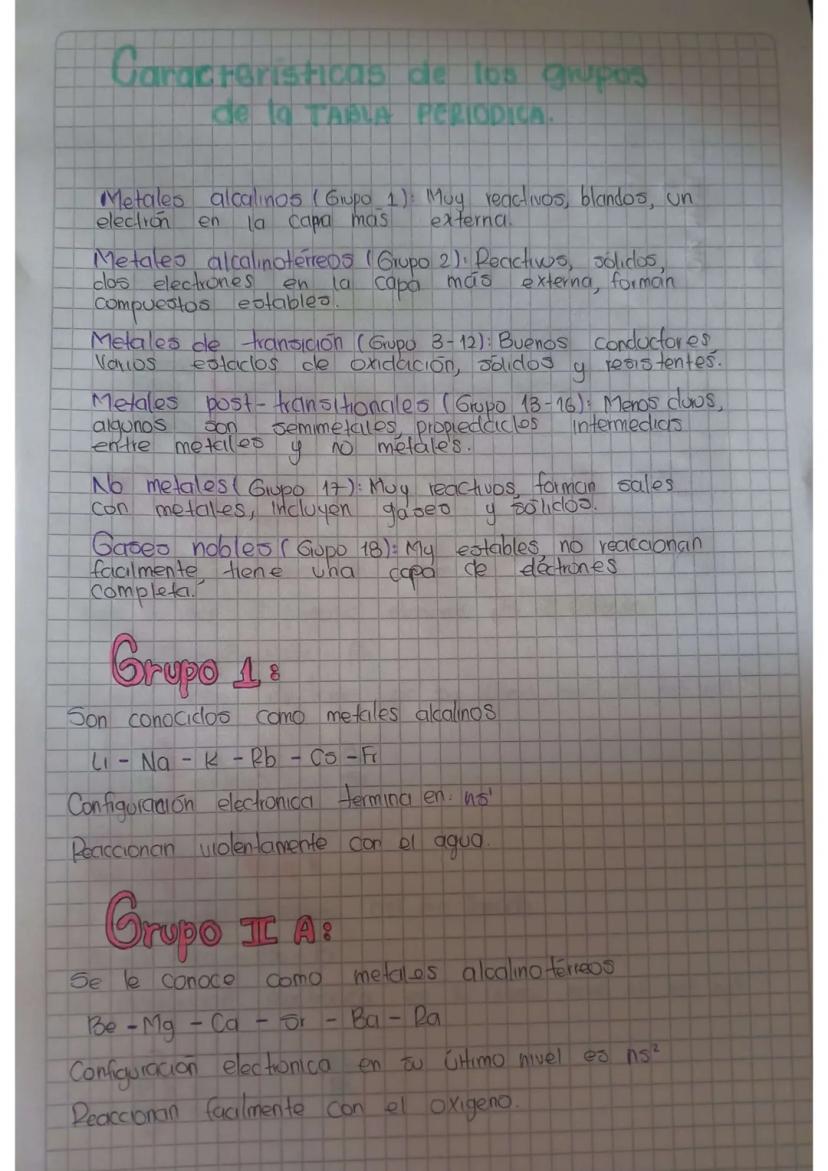 Caracteristicas de los grupos
de la TABLA PERIODICA.
Metales alcalinos (Grupo 1): Muy reactivos, blandos, un
electrón en la capa más externa.
Metales alcalinotérreos (Grupo 2): Reactivos, sólidos,
dos electrones en la capa más externa, forman
compuestos estables.
Metales de transición (Grupo 3-12): Buenos conductores,
Varios estados de oxidación, sólidos y resistentes.
Metales post-transitionales (Grupo 13-16): Menos duros,
algunos son semimetales, propiedades intermedias
entre metales y no metales.
No metales (Grupo 17): Muy reactivos, forman sales
con metales, incluyen gases y sólidos.
Gases nobles (Gupo 18): My estables, no reaccionan
facilmente, tiene una capa de electrones
completa.
Grupo 1:
Son conocidos como metales alcalinos
Li - Na - K - Rb - Cs - Fr
Configuración electronica termina en: ns¹
Reaccionan violentamente con el agua.
Grupo II A:
Se le conoce como metales alcalinotérreos
Be - Mg - Ca - Sr - Ba - Ra
Configuración electronica en su último nivel es ns²
Reaccionan facilmente con el oxigeno.